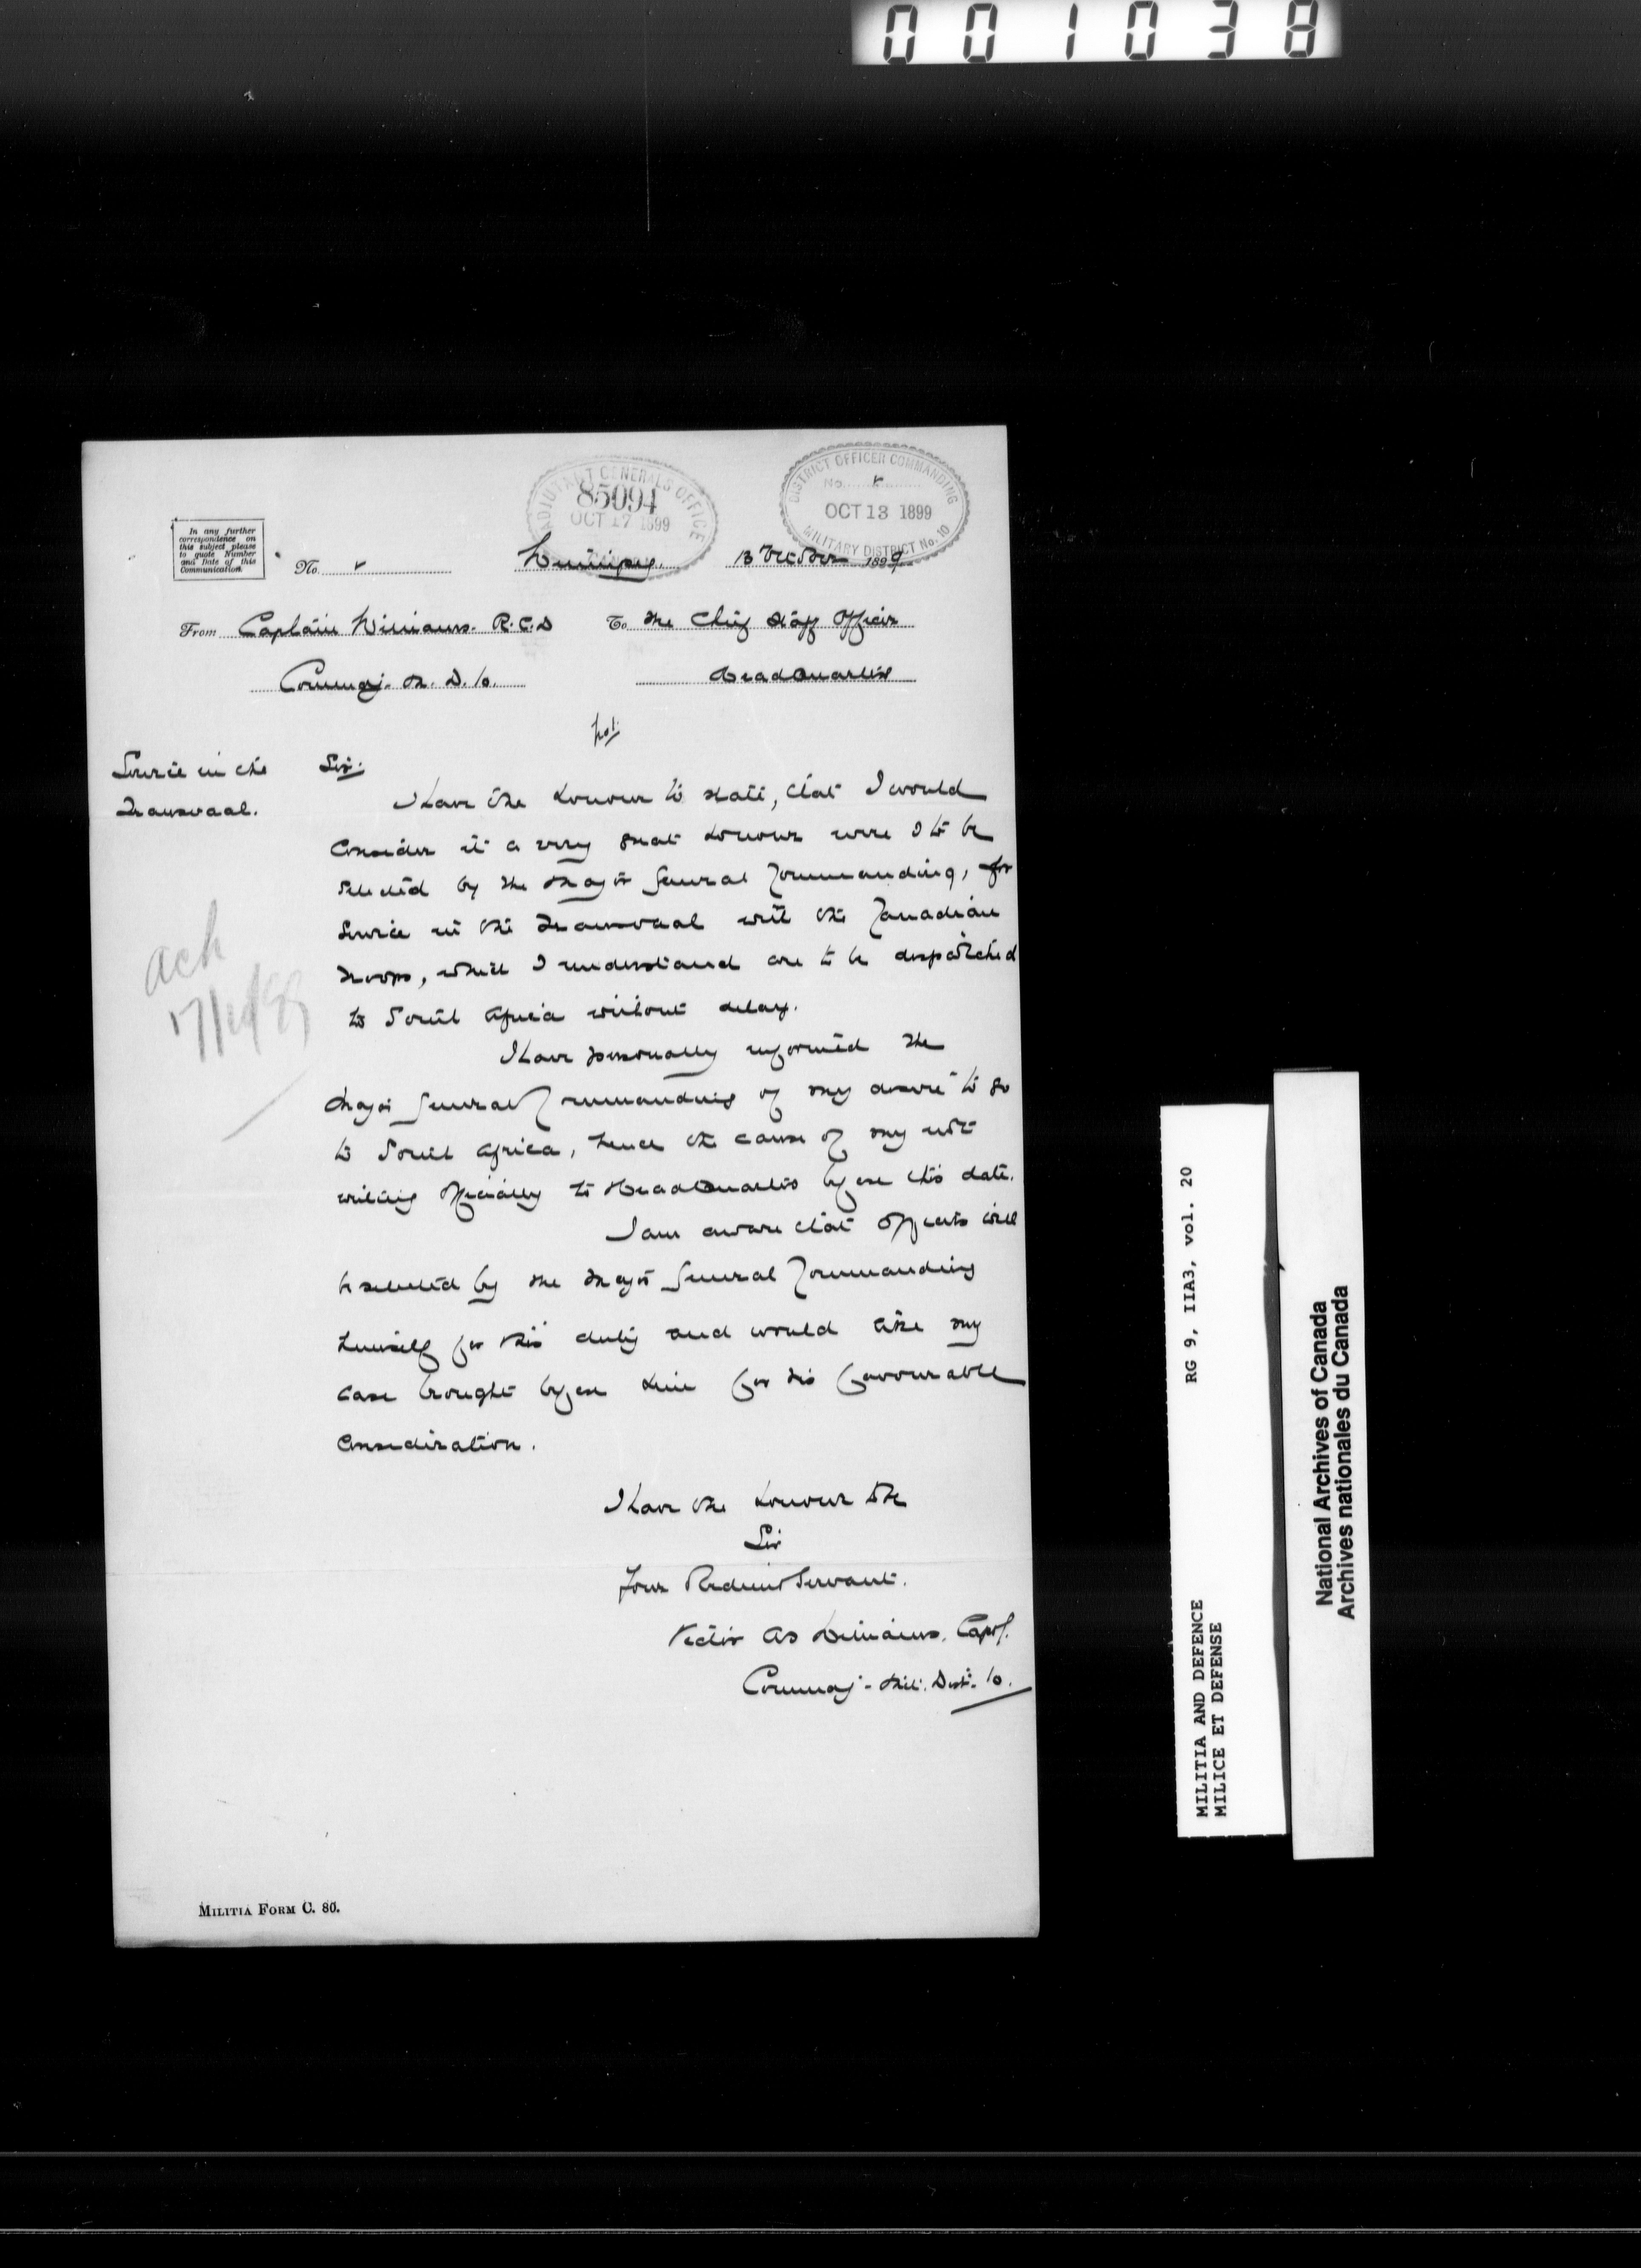 001038
ADJUTANT GENERAL'S OFFICE
85094
OCT 17 1899
CANADA
DISTRICT OFFICER COMMANDING
No.
OCT 13 1899
MILITARY DISTRICT No. 10
In any further
correspondence on
this subject please
to quote Number
and Date of this
Communication.
No. Winnipeg. 13 October 1899.
From Captain Williams. R.C.D To The Chief Staff Officer
Commdg. M. D. 10. HeadQuarters
Service in the
Transvaal.
Sir:
I have the honour to state, that I would
consider it a very great honour were I to be
selected by the Major General Commanding, for
Service in the Transvaal with the Canadian
troops, which I understand are to be despatched
to South Africa without delay.
ack
17/10/99
I have personally informed the
Major General Commanding of my desire to go
to South Africa, hence the cause of my not
writing officially to HeadQuarters before this date.
I am aware that officers will
be selected by the Major General Commanding
himself for this duty and would like my
case brought before him for his favourable
Consideration.
I have the honour to be
Sir
Your Obedient Servant.
Victor AS Williams. Capt.
Commdg - Mil. Dist. 10.
MILITIA FORM C. 80.
RG 9, IIA3, vol. 20
MILITIA AND DEFENCE
MILICE ET DEFENSE
National Archives of Canada
Archives nationales du Canada